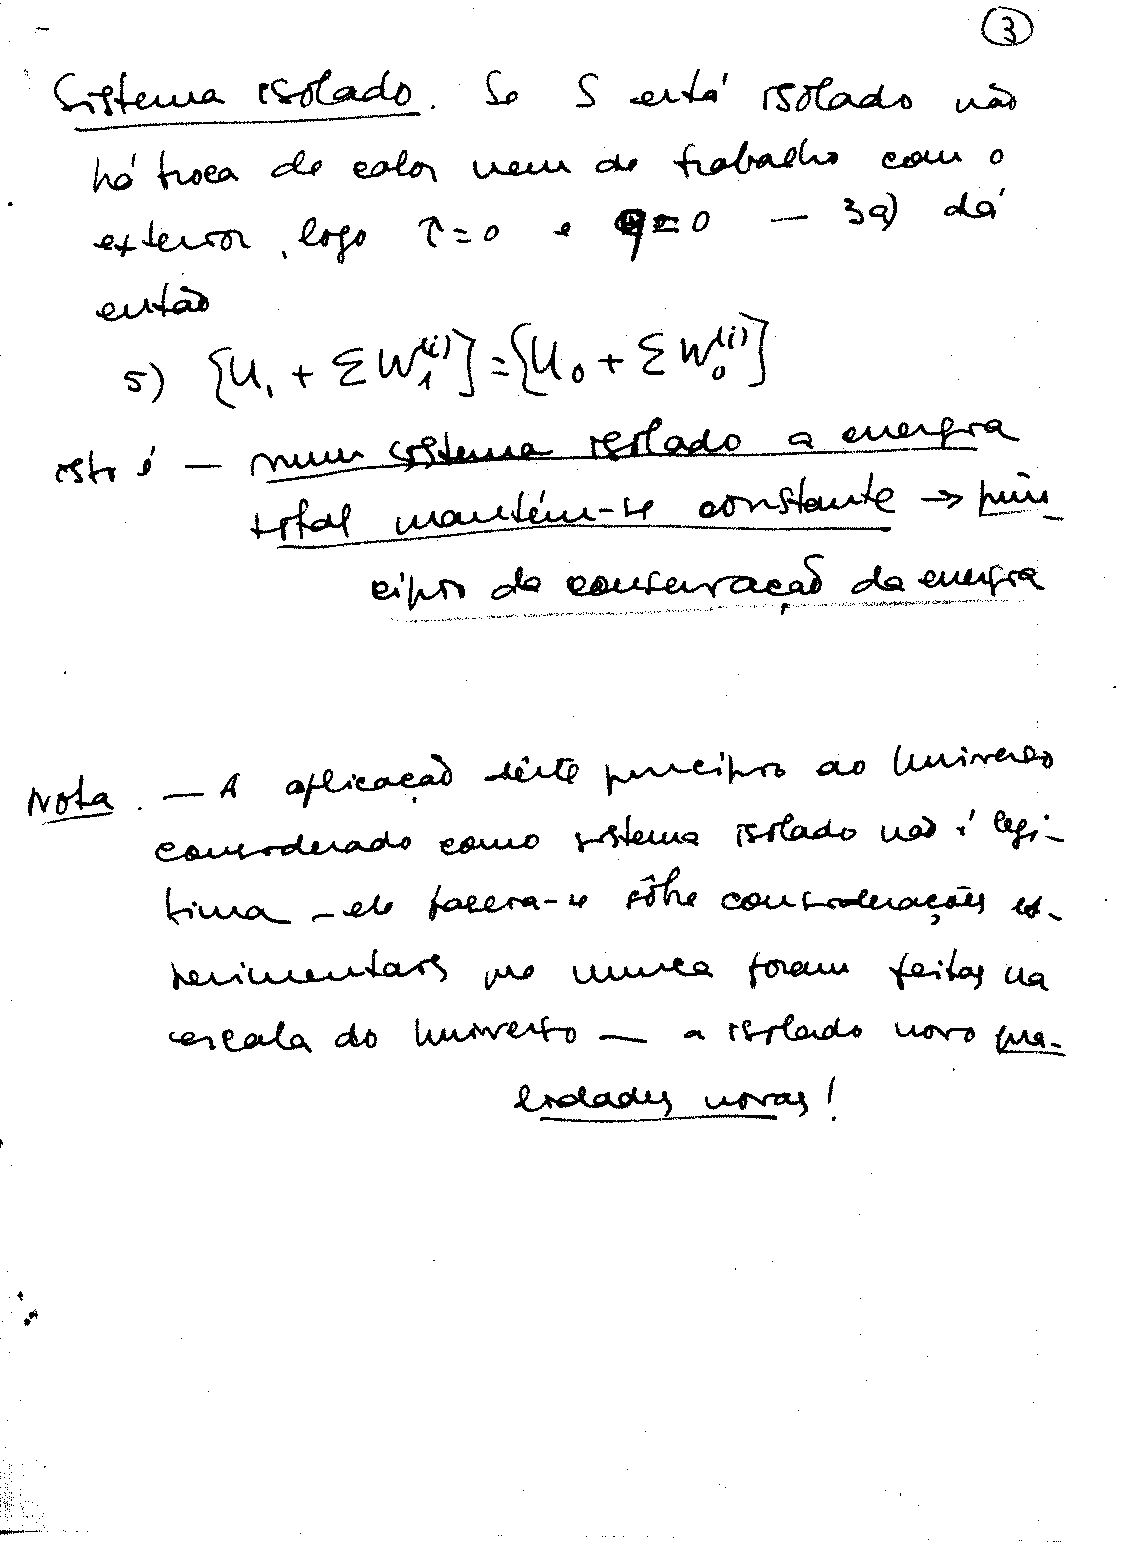 3
Sistema isolado. Se S está isolado não
há troca de calor nem de trabalho com o
exterior, logo τ=0 e q=0 — 3a) dá
então
5) {U₁ + ΣW₁⁽ⁱ⁾} = {U₀ + ΣW₀⁽ⁱ⁾}
isto é — num sistema isolado a energia
total mantém-se constante → prin-
cípio da conservação da energia
Nota. — A aplicação dêste princípio ao Universo
considerado como sistema isolado não é legí-
tima — ele baseia-se sôbre considerações ex-
perimentais que nunca foram feitas na
escala do Universo — a isolado novo qua-
lidades novas!